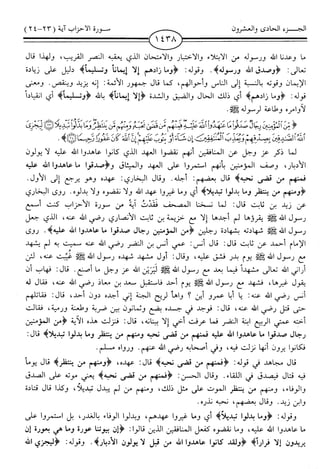 الجـــزء الحادى والعشرون
١٤٣٨
سـورة الأحزاب آية (٢٣-٢٤)
ما وعدنا الله ورسوله من الابتلاء والاختبار والامتحان الذي يعقبه النصر القريب، ولهذا قال
تعالى: ﴿وصدق الله ورسوله﴾. وقوله: ﴿وما زادهم إلا إيماناً وتسليماً﴾ دليل على زيادة
الإيمان وقوته بالنسبة إلى الناس وأحوالهم، كما قال جمهور الأئمة: إنه يزيد وينقص. ومعنى
قوله: ﴿وما زادهم﴾ أي ذلك الحال والضيق والشدة ﴿إلا إيماناً﴾ بالله ﴿وتسليماً﴾ أي انقياداً
لأوامره وطاعة لرسوله ﷺ.
﴿مِّنَ الْمُؤْمِنِينَ رِجَالٌ صَدَقُوا مَا عَاهَدُوا اللَّهَ عَلَيْهِ فَمِنْهُم مَّن قَضَىٰ نَحْبَهُ وَمِنْهُم مَّن يَنتَظِرُ وَمَا بَدَّلُوا تَبْدِيلًا ﴿٢٣﴾ لِّيَجْزِيَ
لما ذكر عز وجل عن المنافقين أنهم نقضوا العهد الذي كانوا عاهدوا الله عليه لا يولون
الأدبار، وصف المؤمنين بأنهم استمروا على العهد والميثاق و﴿صدقوا ما عاهدوا الله عليه
فمنهم من قضى نحبه﴾ قال بعضهم: أجله. وقال البخاري: عهده وهو يرجع إلى الأول.
﴿ومنهم من ينتظر وما بدلوا تبديلاً﴾ أي وما غيروا عهد الله ولا نقضوه ولا بدلوه. روى البخاري
عن زيد بن ثابت قال: لما نسخنا المصحف فَقَدْتُ آية من سورة الأحزاب كنت أسمع
رسول الله ﷺ يقرؤها لم أجدها إلا مع خزيمة بن ثابت الأنصاري رضي الله عنه، الذي جعل
رسول الله ﷺ شهادته بشهادة رجلين ﴿من المؤمنين رجال صدقوا ما عاهدوا الله عليه﴾. روى
الإمام أحمد عن ثابت قال: قال أنس: عمي أنس بن النضر رضي الله عنه سميت به لم يشهد
مع رسول الله ﷺ يوم بدر فشق عليه، وقال: أول مشهد شهده رسول الله ﷺ غُيبت عنه، لئن
أراني الله تعالى مشهداً فيما بعد مع رسول الله ﷺ لَيَرَيَنَّ الله عز وجل ما أصنع. قال: فهاب أن
يقول غيرها، فشهد مع رسول الله ﷺ يوم أحد فاستقبل سعد بن معاذ رضي الله عنه، فقال له
أنس رضي الله عنه: يا أبا عمرو أين ؟ واهاً لريح الجنة إني أجده دون أحد، قال: فقاتلهم
حتى قتل رضي الله عنه، قال: فوجد في جسده بضع وثمانون بين ضربة وطعنة ورمية، فقالت
أخته عمتي الربيع ابنة النضر فما عرفت أخي إلا ببنانه، قال: فنزلت هذه الآية ﴿من المؤمنين
رجال صدقوا ما عاهدوا الله عليه فمنهم من قضى نحبه ومنهم من ينتظر وما بدلوا تبديلاً﴾ قال:
فكانوا يرون أنها نزلت فيه، وفي أصحابه رضي الله عنهم. ورواه مسلم.
قال مجاهد في قوله: ﴿فمنهم من قضى نحبه﴾ قال: عهده، ﴿ومنهم من ينتظر﴾ قال يوماً
فيه قتال فيصدق في اللقاء. وقال الحسن: ﴿فمنهم من قضى نحبه﴾ يعني موته على الصدق
والوفاء، ومنهم من ينتظر الموت على مثل ذلك، ومنهم من لم يبدل تبديلاً، وكذا قال قتادة
وابن زيد. وقال بعضهم، نحبه نذره.
وقوله: ﴿وما بدلوا تبديلاً﴾ أي وما غيروا عهدهم، وبدلوا الوفاء بالغدر، بل استمروا على
ما عاهدوا الله عليه، وما نقضوه كفعل المنافقين الذين قالوا: ﴿إن بيوتنا عورة وما هي بعورة إن
يريدون إلا فراراً﴾ ﴿ولقد كانوا عاهدوا الله من قبل لا يولون الأدبار﴾. وقوله: ﴿ليجزي الله